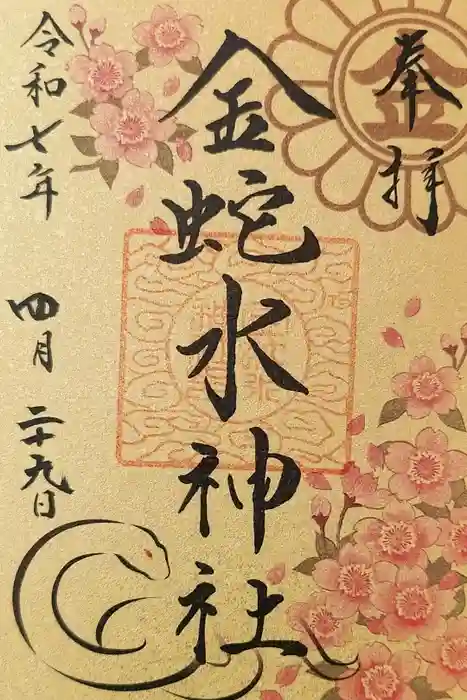 奉拝
金
金蛇水神社
令和七年
四月二十九日